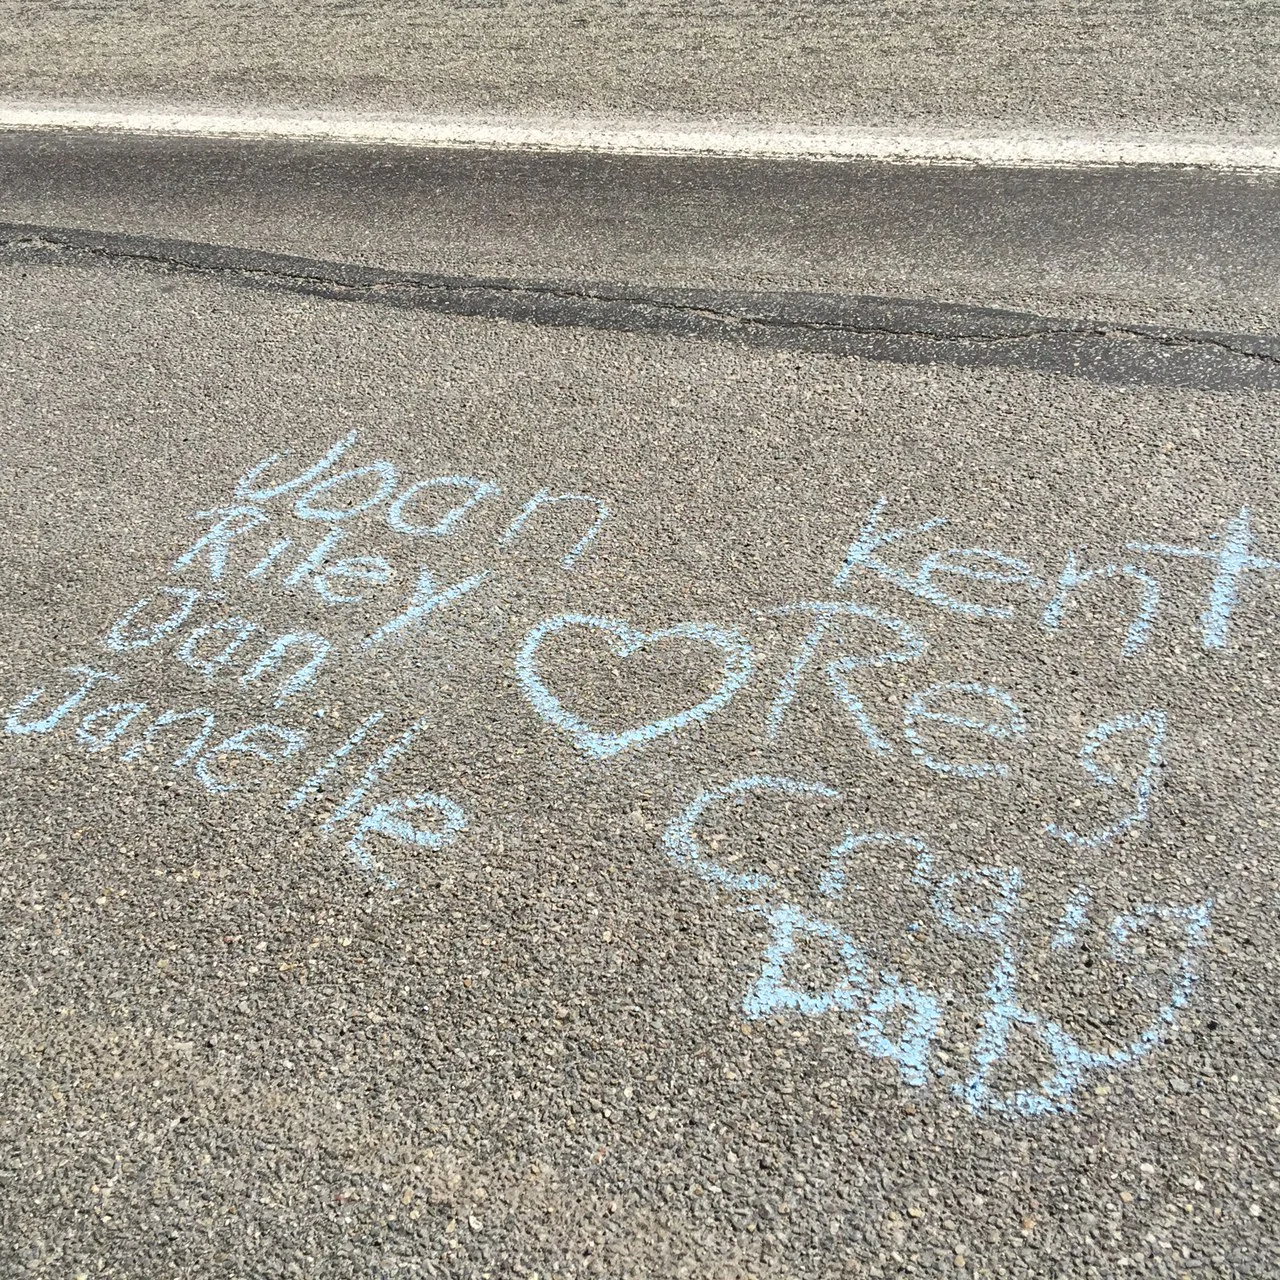 Joan
Riley
Dan
Janelle
Kent
Reg
Craig
Dab